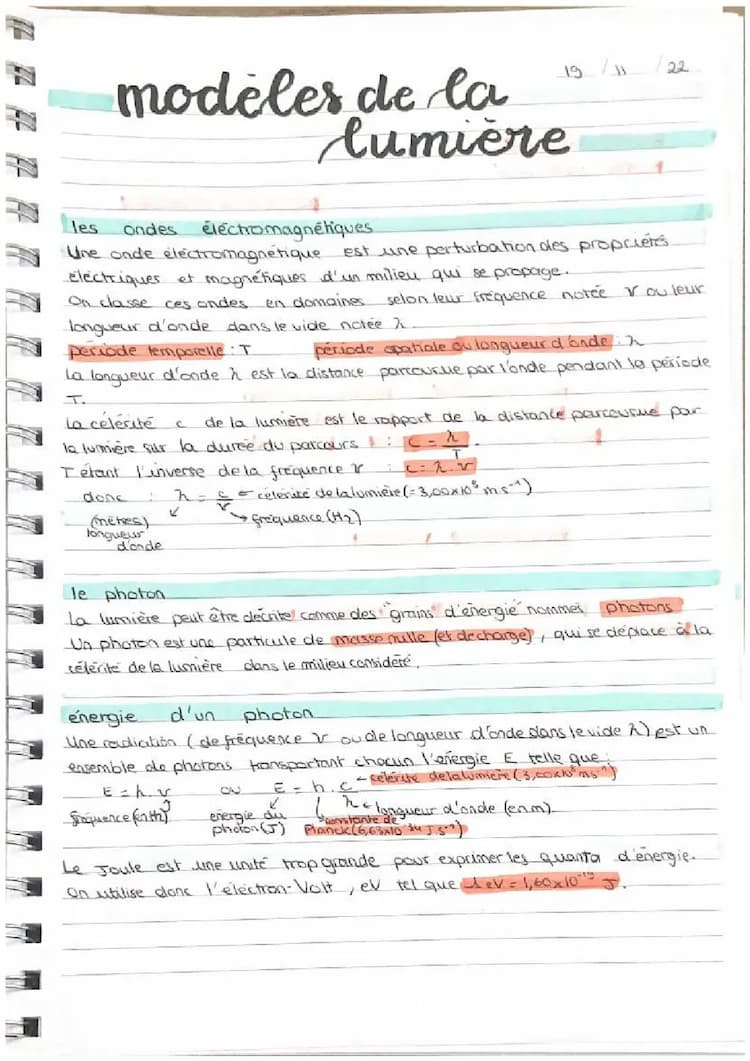 19 / 11 / 22
modèles de la
lumière
les ondes éléctromagnétiques
Une onde éléctromagnétique est une perturbation des propriétés
éléctriques et magnétiques d'un milieu qui se propage.
On classe ces ondes en domaines selon leur fréquence notée ν ou leur
longueur d'onde dans le vide notée λ.
période temporelle : T période spatiale ou longueur d'onde : λ
La longueur d'onde λ est la distance parcourue par l'onde pendant la période
T.
La célérité c de la lumière est le rapport de la distance parcourue par
la lumière sur la durée du parcours : c = λ/T.
T étant l'inverse de la fréquence ν : c = λ.ν
donc : λ = c/ν ← célérité de la lumière (= 3,00x10⁸ m s⁻¹)
(mètres) ↙ ↳ fréquence (Hz)
longueur
d'onde
le photon
La lumière peut être décrite comme des "grains" d'énergie nommés photons
Un photon est une particule de masse nulle (et de charge), qui se déplace à la
célérité de la lumière dans le milieu considéré.
énergie d'un photon
Une radiation (de fréquence ν ou de longueur d'onde dans le vide λ) est un
ensemble de photons transportant chacun l'énergie E telle que :
E = h.ν ou E = h.c/λ ← célérité de la lumière (3,00x10⁸ m s⁻¹)
fréquence (en Hz) énergie du photon (J) constante de Planck (6,63x10⁻³⁴ J.s⁻¹) ← longueur d'onde (en m)
Le Joule est une unité trop grande pour exprimer les quanta d'énergie.
On utilise donc l'éléctron-Volt, eV tel que 1 eV = 1,60x10⁻¹⁹ J.